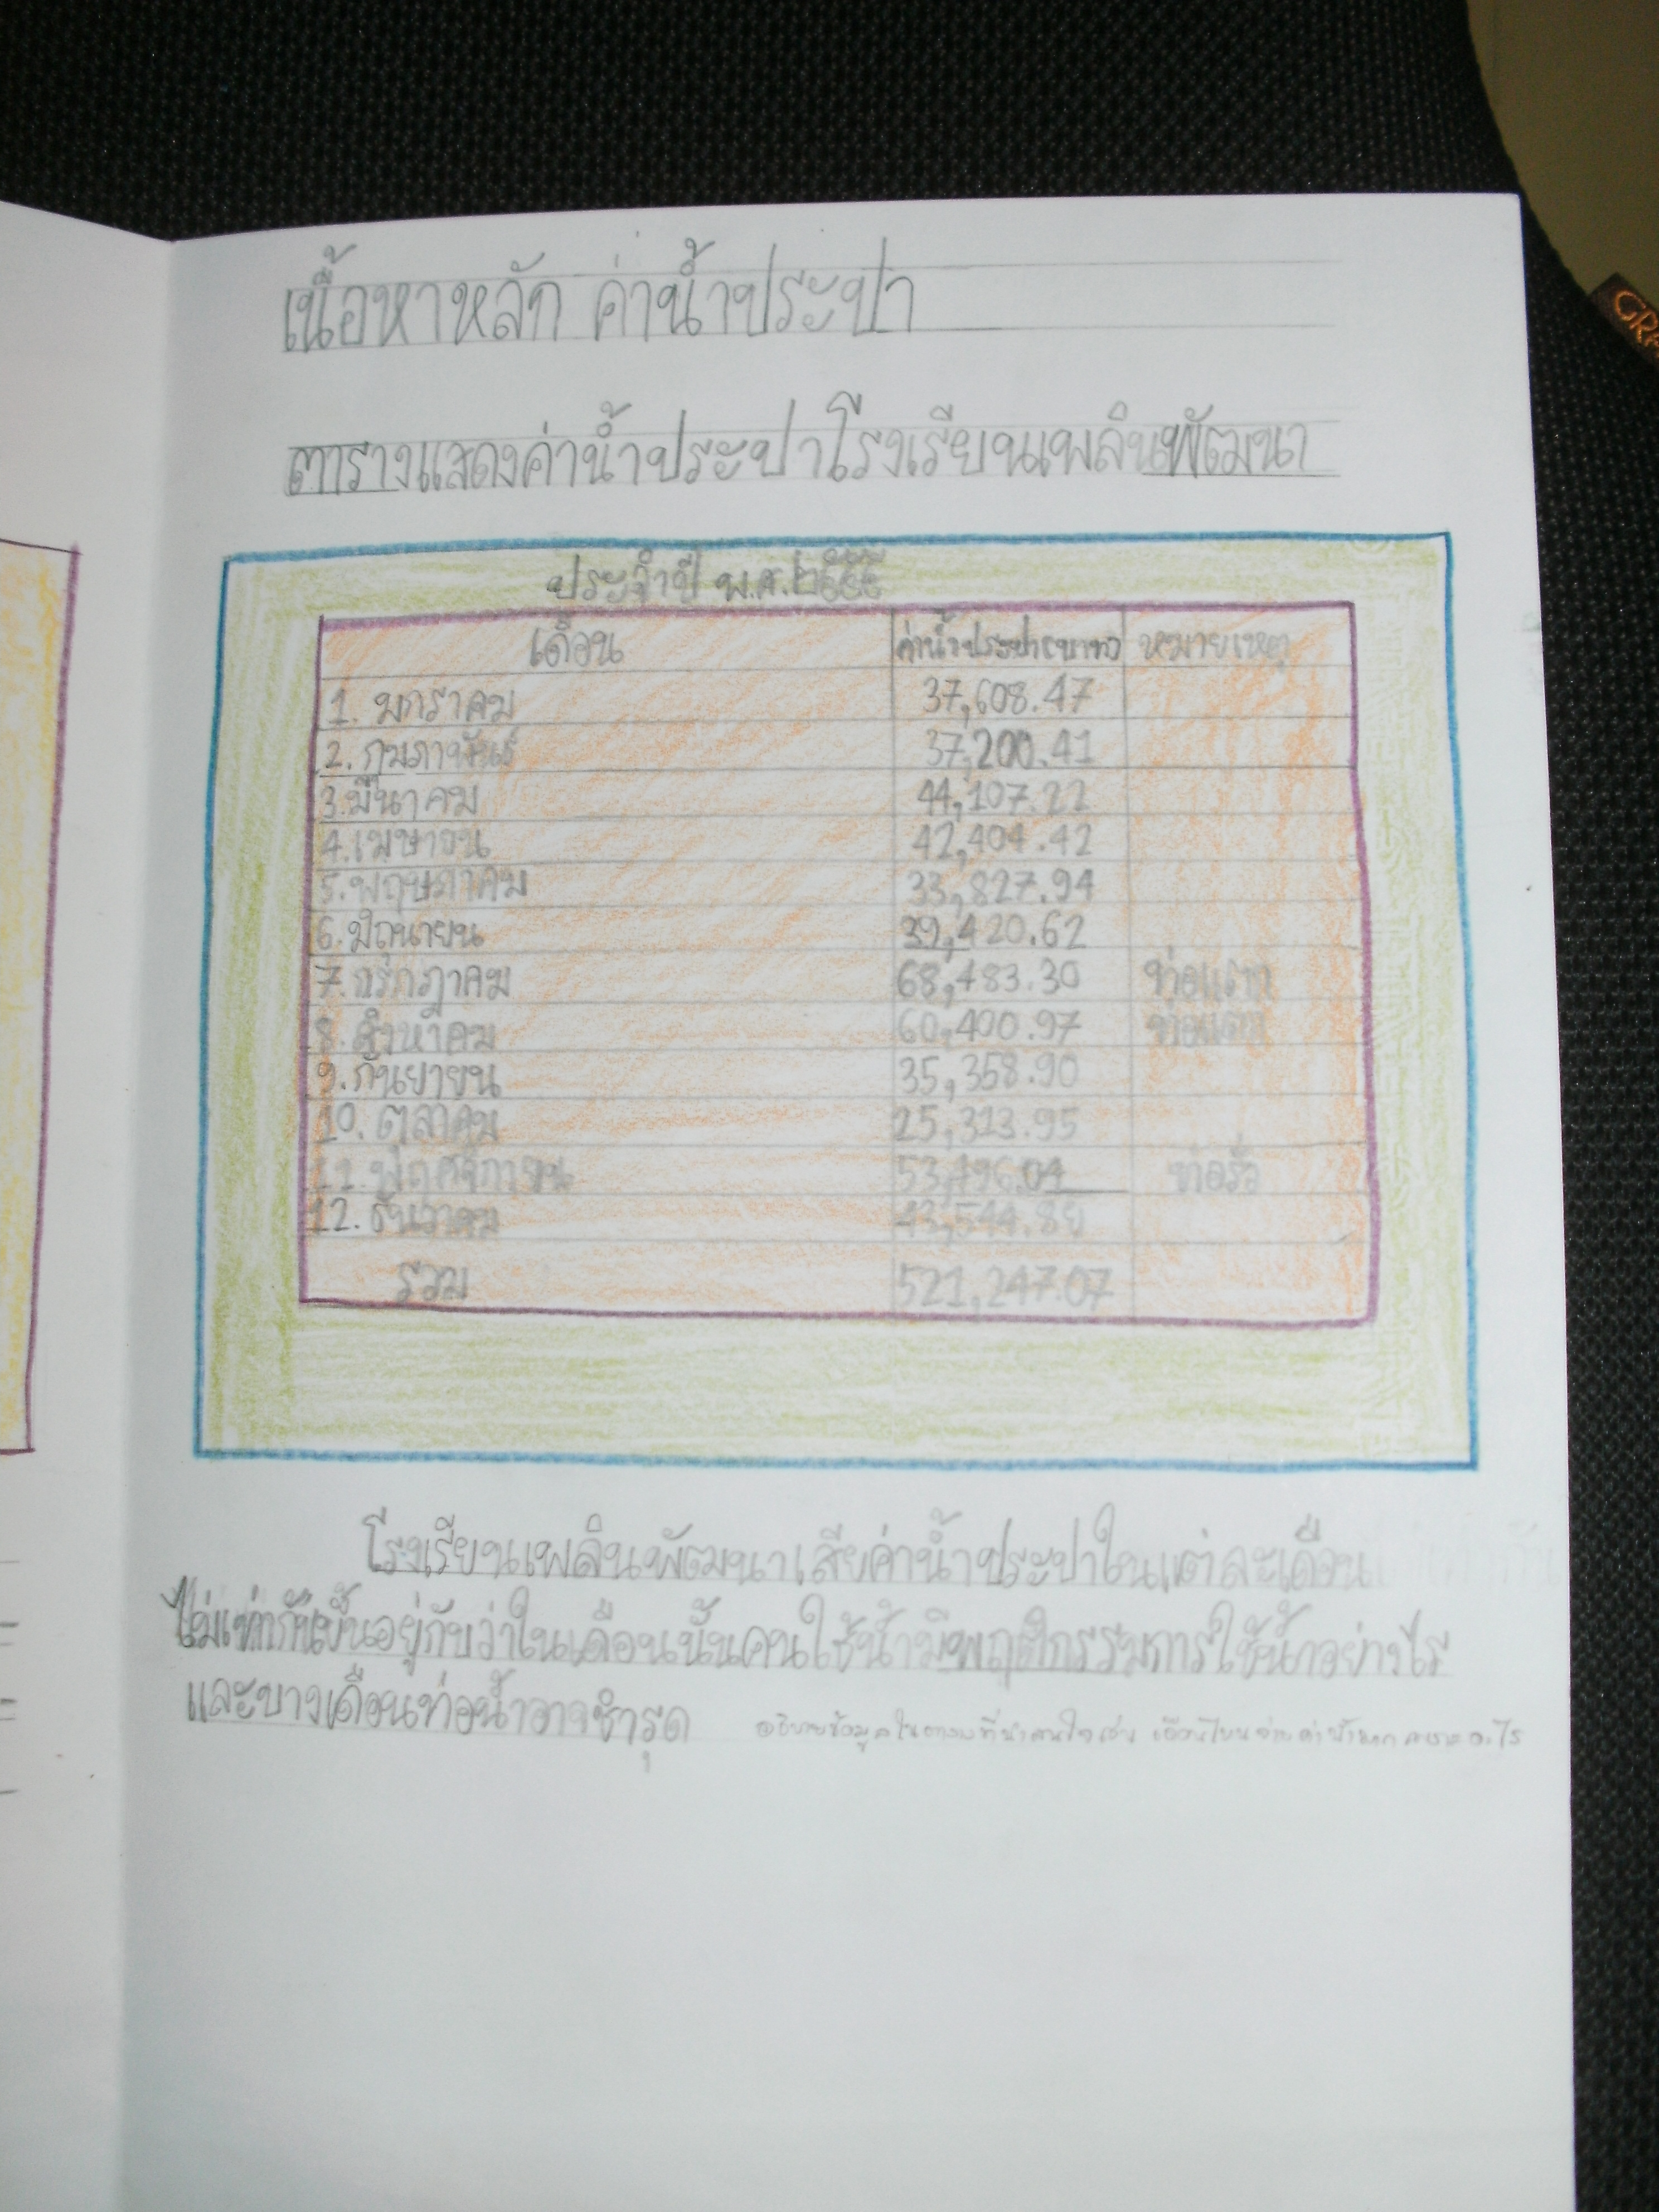 เนื้อหาหลัก ค่าน้ำประปา
ตารางแสดงค่าน้ำประปาโรงเรียนเพลินพัฒนา
ประจำปี พ.ศ.๒๕๕๕
เดือน ค่าน้ำประปา(บาท) หมายเหตุ
1. มกราคม 37,608.47
2. กุมภาพันธ์ 37,200.41
3.มีนาคม 44,107.22
4.เมษายน 42,404.42
5.พฤษภาคม 33,827.94
6.มิถุนายน 39,420.62
7.กรกฎาคม 68,483.30 ท่อแตก
8.สิงหาคม 60,400.97 ท่อแตก
9.กันยายน 35,358.90
10. ตุลาคม 25,313.95
11.พฤศจิกายน 53,496.04 ท่อรั่ว
12. ธันวาคม
รวม 521,247.07
โรงเรียนเพลินพัฒนาเสียค่าน้ำประปาในแต่ละเดือน
ไม่เท่ากันขึ้นอยู่กับว่าในเดือนนั้นคนใช้น้ำมีพฤติกรรมการใช้น้ำอย่างไร
และบางเดือนท่อน้ำอาจชำรุด
อธิบายข้อมูลในตารางที่น่าสนใจ เช่น เดือนไหนจ่ายค่าน้ำมาก เพราะอะไร
GRA